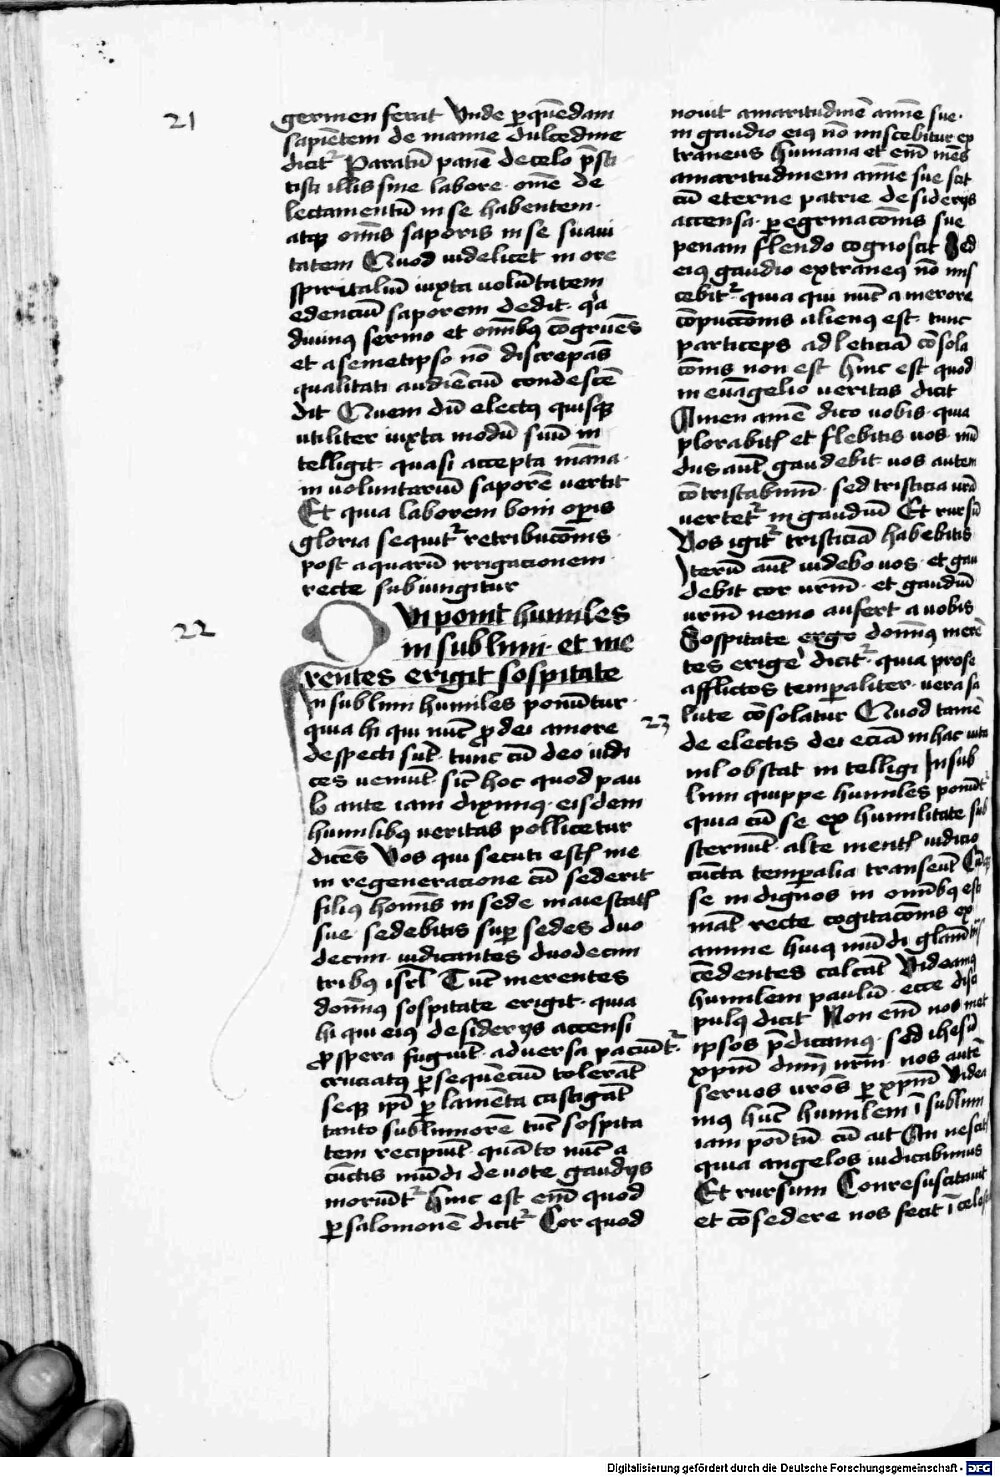 21
germen ferat Vnde per quẽdam
sapiẽtem de manne dulcedine
dicit᷑ Paratũ panẽ de celo p̃sti
tisti illis sine labore · om̃e de
lectamentũ in se habentem ·
atqꝫ om̃is saporis in se suaui
tatem Quod videlicet in ore
spiritaliũ iuxta volũtatem
edenciũ saporem dedit · q̃a
diuinꝰ sermo et om̃ibꝰ cõgruẽs
et a semetipso nõ discrepãs
qualitati audiẽciũ condescẽ
dit Quem dũ electꝰ quisqꝫ
vtiliter iuxta modũ suũ in
telligit · quasi accepta mãna ·
in voluntariũ saporẽ vertit
Et quia laborem boni oꝑis
gloria sequit᷑ retribucõnis ·
post aquarũ irrigacionem ·
recte subiungitur
22
Qui ponit humiles
in sublimi · et me
rentes erigit sospitate
In sublimi humiles ponũtur ·
quia hi qui nũc ꝓ dei amore
despecti sũt · tunc cũ deo iudi
ces veniũt · sic̃ hoc quod pau
lo ante iam diximꝰ · eisdem
humilibꝰ veritas pollicetur
dicẽs Vos qui secuti estꝭ me
in regeneracione cũ sederit
filiꝰ hoĩnis in sede maiestatꝭ
sue · sedebitis suꝑ sedes duo
decim · iudicantes duodecim
tribꝰ isr̃l Tũc merentes
domĩnꝰ sospitate erigit · quia
hi qui eiꝰ desiderijs accensi
ꝓspera fugiũt · aduersa paciũt᷑ ·
cruciatꝰ ꝑsequẽciũ tolerãt
seqꝫ ip̃i ꝑ lamẽta castigãt
tanto sublimiorẽ tũc sospita
tem recipiũt · quãto nũc a
cũctis mũdi deuote gaudijs
moriũt᷑ Hinc est em̃ quod
ꝑ salomonẽ dicit᷑ Cor quod
nouit amaritudinẽ anĩe sue ·
in gaudio eiꝰ nõ miscebitur ex
traneus Humana et em̃ mẽs
amaritudinem anĩe sue scit
cũ eterne patrie desiderijs
accensa · ꝑegrinacõnis sue
penam flendo cognoscit Sed
eiꝰ gaudio extraneꝰ nõ mis
cebit᷑ · quia qui nũc a merore
cõpuccõnis alienꝰ est · tunc
particeps ad leticiã cõsola
cõnis non est Hinc est quod
in euãgelio veritas dicit
Amen amẽ dico vobis · quia
plorabitꝭ et flebitis vos · mũ
dus aũt gaudebit · vos autem
cõtristabimĩ · sed tristicia vrã
vertet᷑ in gaudiũ Et rursũ
Vos igit᷑ tristiciã habebitis
Iterũ aũt videbo vos · et gau
debit cor vrm̃ · et gaudiũ
vrm̃ nemo aufert a vobis
Sospitate ergo domĩnꝰ merẽ
tes erige dicit᷑ · quia prose
afflictos temꝑaliter · vera sa
23
lute cõsolatur Quod tamẽ
de electis dei eciã in hac vita
nĩl obstat intelligi In sub
limi quippe humiles ponũt᷑
quia cũ se ex humilitate sub
sternũt · alte mentꝭ iudicio
cũcta temꝑalia transeũt Cũqꝫ
se indignos in om̃ibꝰ esti
mãt · recte cogitacõnis ex
amine huiꝰ mũdi gloriam
cedentes calcãt Videamꝰ
humilem paulũ · ecce disci
pulis dicit Non em̃ nos met
ipsos p̃dicamꝰ · sed ihesũ
xp̃m dnm̃ nrm̃ · nos autẽ
seruos vrõs ꝑ xp̃m Videa
mꝰ hũc humilem ĩ sublimi
iam põitũ · cũ ait An nescitꝭ
quia angelos iudicabimus
Et rursum Conresuscitauit
et cõsedere nos fecit ĩ celes
Digitalisierung gefördert durch die Deutsche Forschungsgemeinschaft - DFG